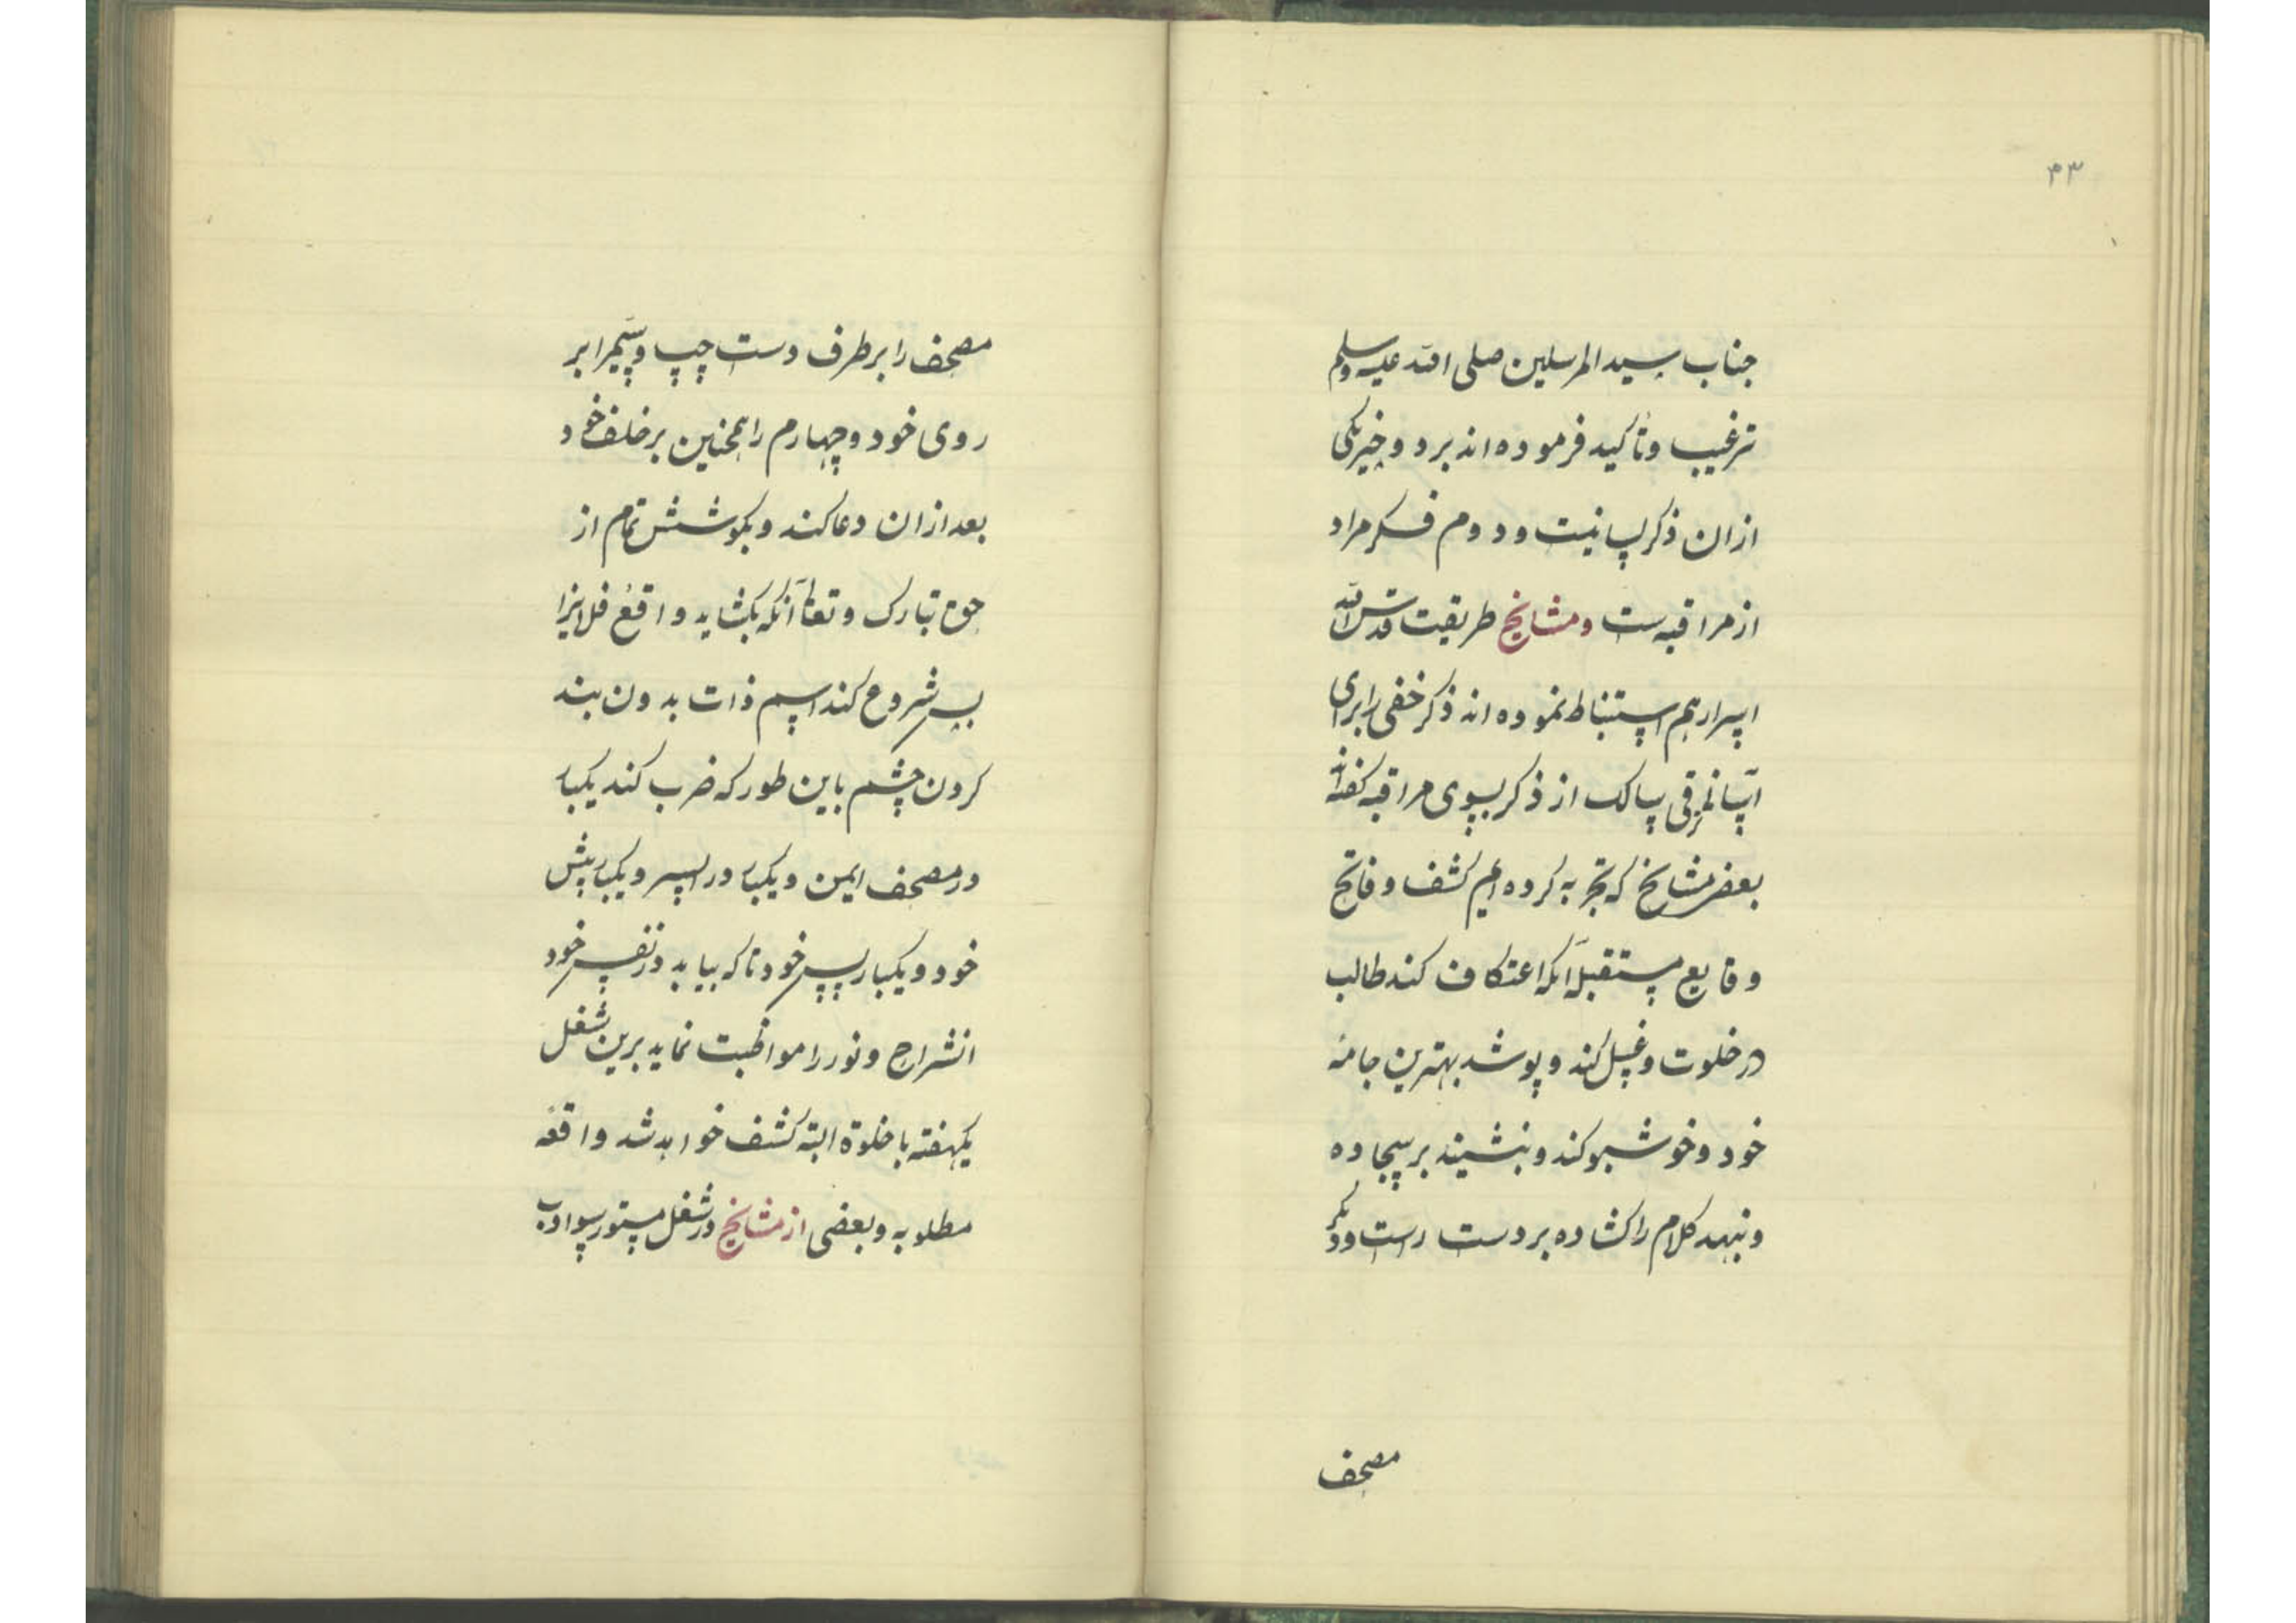 ۳۳
جناب سید المرسلین صلی الله علیه وسلم
ترغیب و تاکید فرموده اند بر دو چیز یکی
ازان ذکر لسانیست و دوم فکر مراد
از مراقبه ست و مشایخ طریقت قدس الله
اسرارهم استنباط نموده اند ذکر خفی را برای
آسانی ترقی سالک از ذکر بسوی مراقبه گفته اند
بعض مشایخ که تجربه کرده ایم کشف و فاتح
وقایع مستقبل آنکه اعتکاف کند طالب
در خلوت و غسل کند و پوشد بهترین جامهٔ
خود و خوشبو کند و بنشیند بر سجاده
و نهد کلام را کشاده بر دست راست و دیگر
مصحف
مصحف را بر طرف دست چپ و سیم را بر
روی خود و چهارم را همچنین بر خلف خود
بعد ازان دعا کند و بکوشش تمام از
حق تبارک و تعالی آنکه بکشاید واقعهٔ فلانرا
پس شروع کند اسم ذات بدون بند
کردن چشم باین طور که ضرب کند یکبار
در مصحف ایمن و یکبار در ایسر و یکبار پیش
خود و یکبار پس خود تا که بیابد در نفس خود
انشراح و نور را مواظبت نماید برین شغل
یکهفته با خلوة البته کشف خواهد شد واقعهٔ
مطلوبه و بعضی از مشایخ در شغل مستور سواد ادب